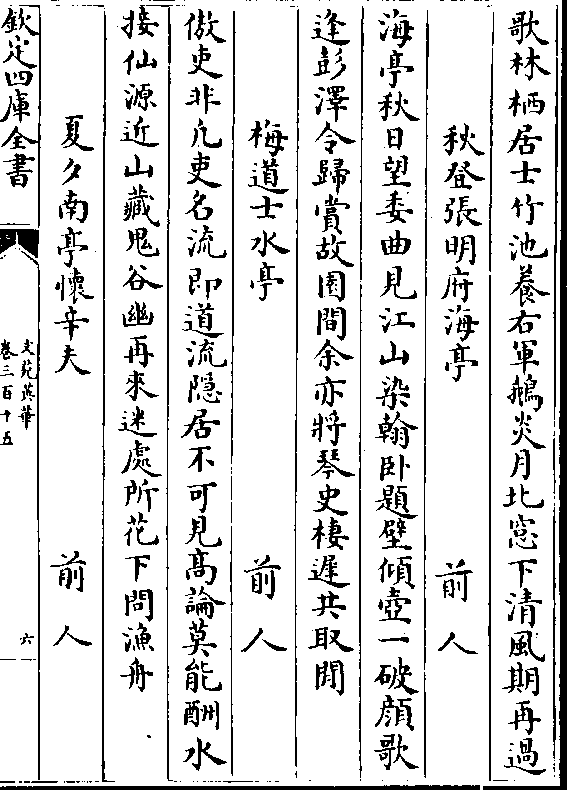 歌林栖居士竹池養右軍鵝炎月北窓下清風期再過
秋登張明府海亭　前人
海亭秋日望委曲見江山染翰卧題壁傾壺一破顔歌
逢彭澤令歸賞故園間余亦將琴史棲遲共取閒
梅道士水亭　前人
傲吏非凡吏名流即道流隠居不可見髙論莫能酬水
接仙源近山藏鬼谷幽再來迷處所花下問漁舟
夏夕南亭懷辛夫　前人
欽定四庫全書
文苑英華
卷三百十五
六